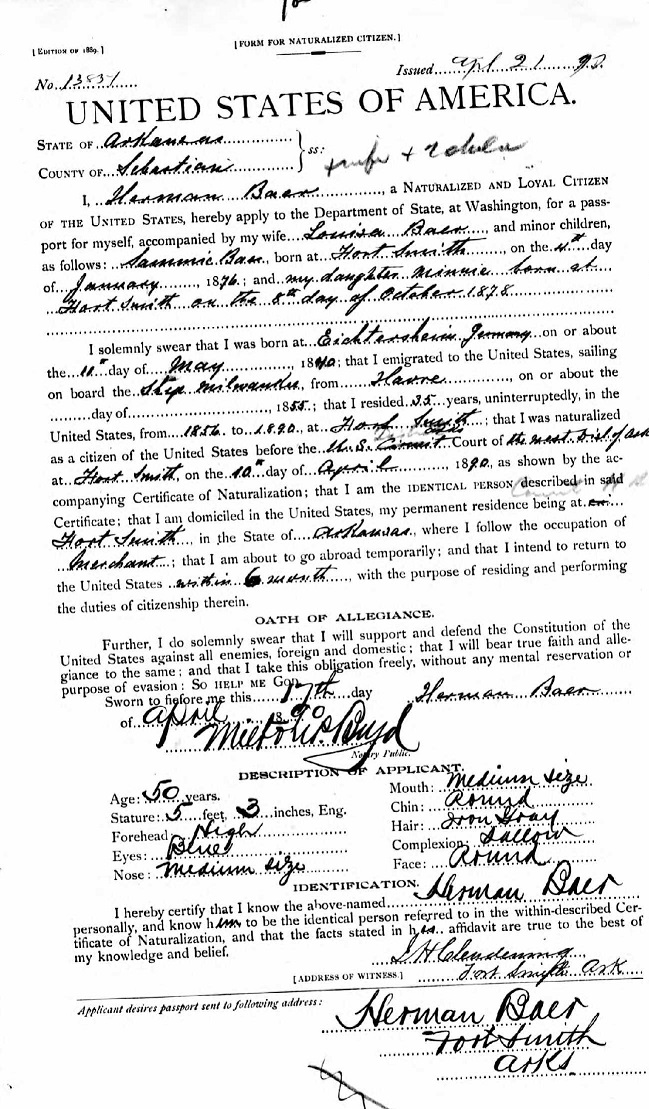 [EDITION OF 1889.]
[FORM FOR NATURALIZED CITIZEN.]
No. 13831
Issued Apl. 21 90
UNITED STATES OF AMERICA.
STATE OF Arkansas
COUNTY OF Sebastian } ss:
+ wife + 2 chdn
I, Herman Baer, a NATURALIZED AND LOYAL CITIZEN
OF THE UNITED STATES, hereby apply to the Department of State, at Washington, for a pass-
port for myself, accompanied by my wife Louisa Baer, and minor children,
as follows: Sammie Baer, born at Fort Smith, on the 4th day
of January, 1876; and my daughter Minnie born at
Fort Smith on the 8th day of October 1878
I solemnly swear that I was born at Eichtersheim Germany on or about
the 10th day of May, 1840; that I emigrated to the United States, sailing
on board the Ship Milwaukee, from Havre, on or about the
day of , 1855; that I resided 35 years, uninterruptedly, in the
United States, from 1856 to 1890, at Fort Smith; that I was naturalized
as a citizen of the United States before the U. S. Court of the West Dist of Ark
at Fort Smith, on the 10th day of April, 1890, as shown by the ac-
companying Certificate of Naturalization; that I am the IDENTICAL PERSON described in said
Certificate; that I am domiciled in the United States, my permanent residence being at
Fort Smith in the State of Arkansas, where I follow the occupation of
Merchant; that I am about to go abroad temporarily; and that I intend to return to
the United States within 6 month, with the purpose of residing and performing
the duties of citizenship therein.
OATH OF ALLEGIANCE.
Further, I do solemnly swear that I will support and defend the Constitution of the
United States against all enemies, foreign and domestic; that I will bear true faith and alle-
giance to the same; and that I take this obligation freely, without any mental reservation or
purpose of evasion: SO HELP ME GOD.
Sworn to before me this 17th day Herman Baer
of April, 1890
Boyd
Notary Public.
DESCRIPTION OF APPLICANT.
Age: 50 years.
Stature: 5 feet 3 inches, Eng.
Forehead: High
Eyes: Blue
Nose: Medium size
Mouth: Medium size
Chin: Round
Hair: Iron Gray
Complexion: Sallow
Face: Round
IDENTIFICATION.
I hereby certify that I know the above-named Herman Baer
personally, and know him to be the identical person referred to in the within-described Cer-
tificate of Naturalization, and that the facts stated in his affidavit are true to the best of
my knowledge and belief.
J H Clendening
[ADDRESS OF WITNESS.] Fort Smith Ark
Applicant desires passport sent to following address:
Herman Baer
Fort Smith
Arks